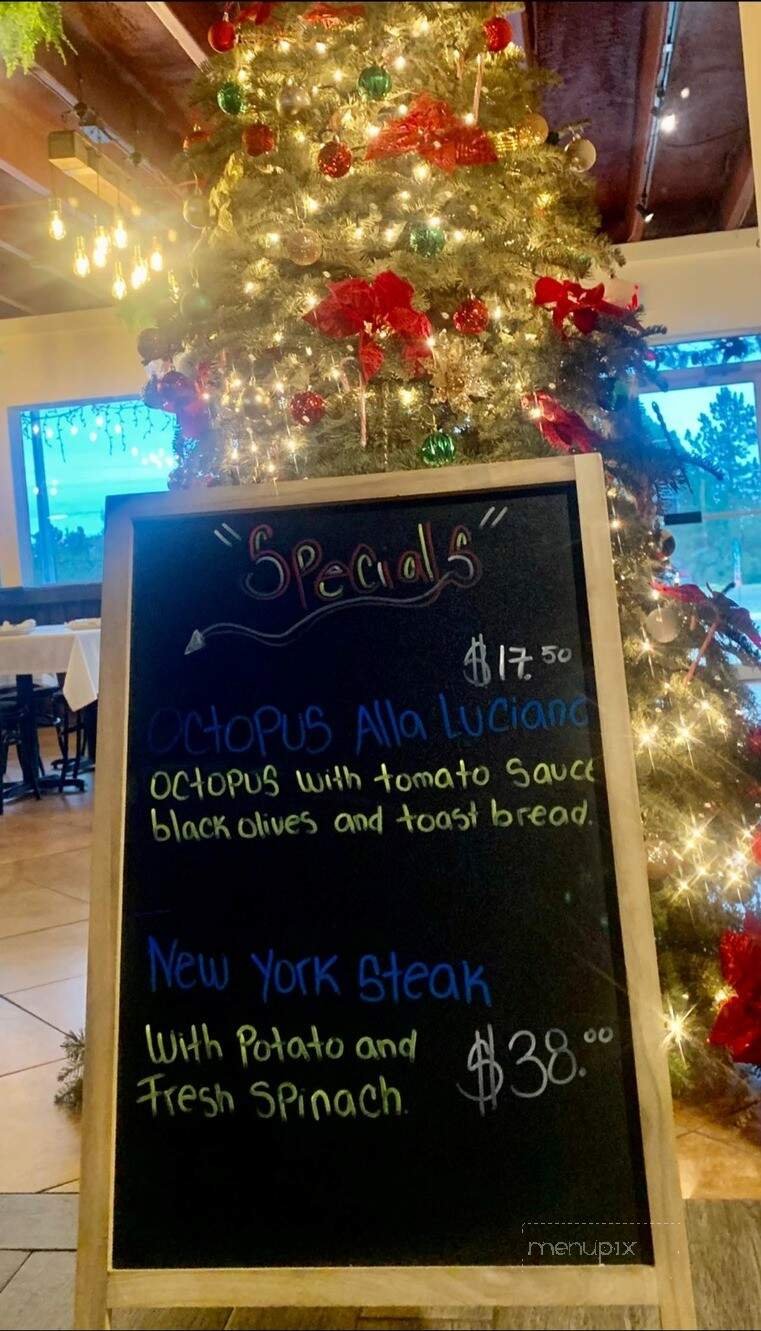 "Specials"
$17.50
Octopus Alla Luciana
Octopus with tomato Sauce
black olives and toast bread.
New York Steak
With Potato and
$38.00
Fresh Spinach.
menupix